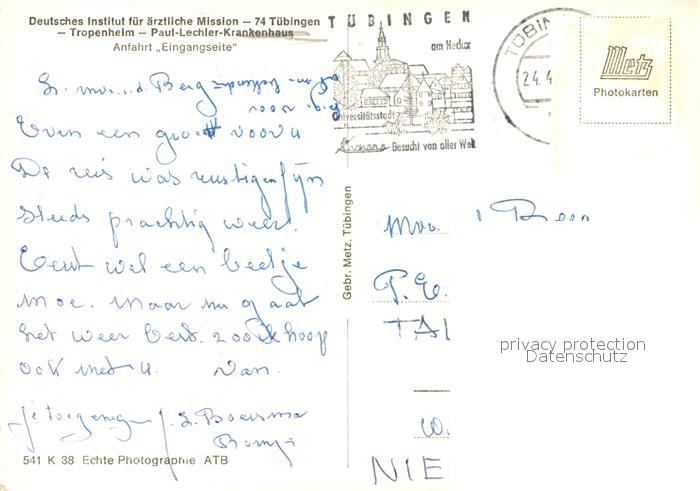 Deutsches Institut für ärztliche Mission – 74 Tübingen
– Tropenheim – Paul-Lechler-Krankenhaus
Anfahrt „Eingangseite”
TÜBINGEN
am Neckar
Universitätsstadt
Besucht von aller Welt
TÜBIN
24.4
Metz
Photokarten
v. d. Berg
voor
Even een groet voor u
De reis was rustig en fijn
Steeds prachtig weer.
Eerst wel een beetje
moe. maar nu gaat
het weer best. zoo ik hoop
ook met u. Van
je toegenegen J. L. Boersma
Gebr. Metz, Tübingen
Mvr.
P.C.
TAL
W.
NIE
privacy protection
Datenschutz
541 K 38 Echte Photographie ATB